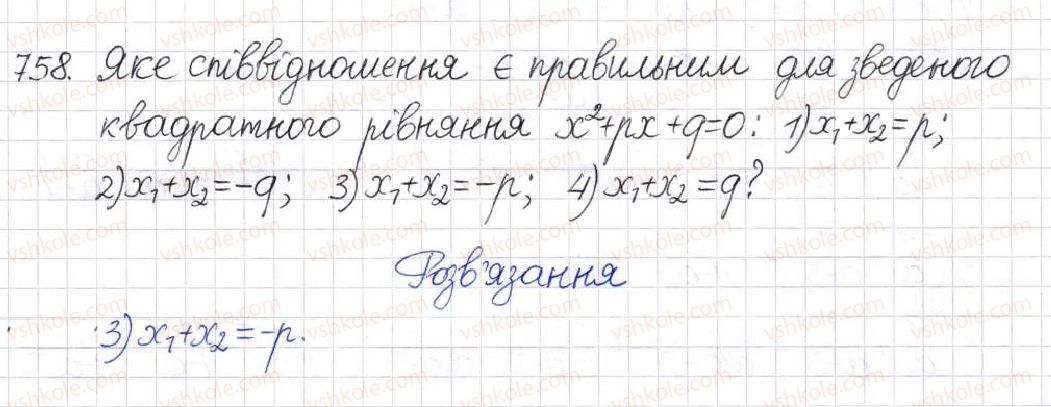 758. Яке співвідношення є правильним для зведеного
квадратного рівняння x²+px+q=0: 1) x₁+x₂=p;
2) x₁+x₂=-q; 3) x₁+x₂=-p; 4) x₁+x₂=q?
Розв'язання
3) x₁+x₂=-p.
vshkole.com